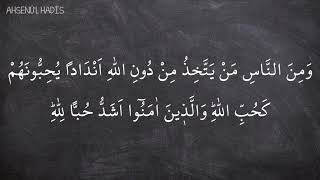 AHSENÜ'L HADİS
وَمِنَ النَّاسِ مَنْ يَتَّخِذُ مِنْ دُونِ اللّٰهِ اَنْدَاداً يُحِبُّونَهُمْ
كَحُبِّ اللّٰهِۜ وَالَّذ۪ينَ اٰمَنُٓوا اَشَدُّ حُباًّ لِلّٰهِۜ